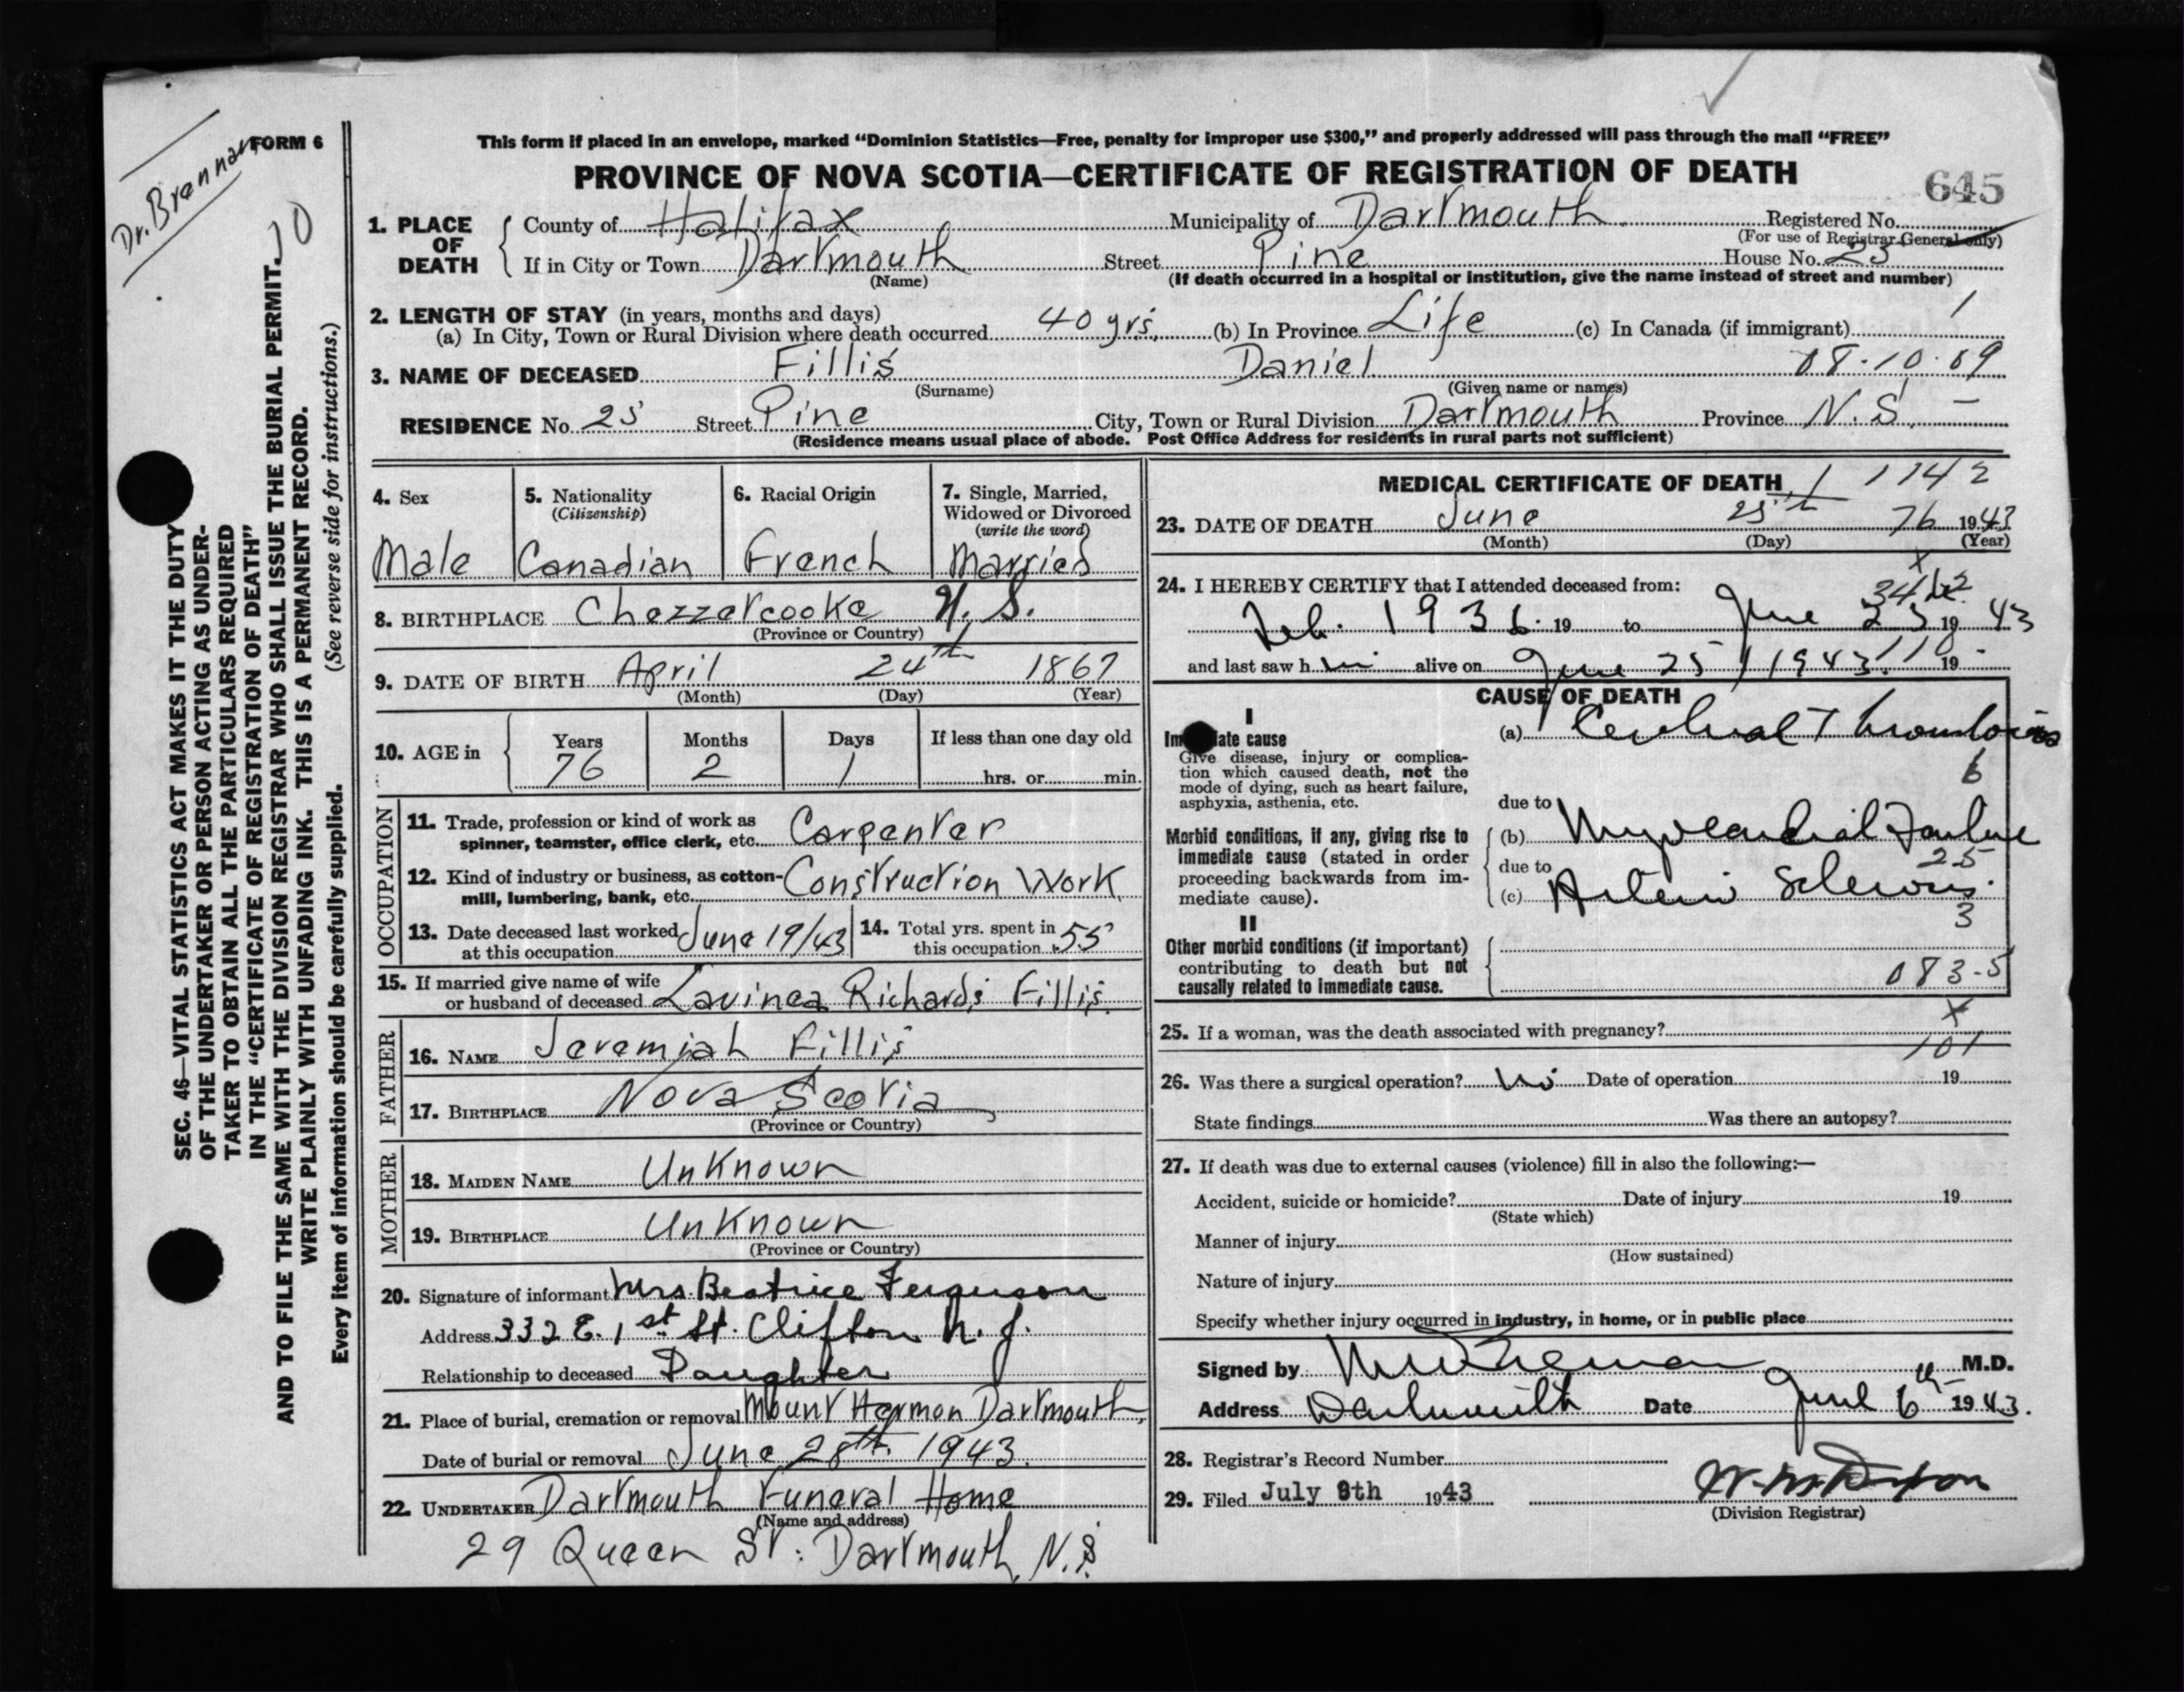 Dr. Brennan
FORM 6
10
SEC. 46—VITAL STATISTICS ACT MAKES IT THE DUTY
OF THE UNDERTAKER OR PERSON ACTING AS UNDER-
TAKER TO OBTAIN ALL THE PARTICULARS REQUIRED
IN THE "CERTIFICATE OF REGISTRATION OF DEATH"
AND TO FILE THE SAME WITH THE DIVISION REGISTRAR WHO SHALL ISSUE THE BURIAL PERMIT.
WRITE PLAINLY WITH UNFADING INK. THIS IS A PERMANENT RECORD.
Every item of information should be carefully supplied. (See reverse side for instructions.)
This form if placed in an envelope, marked "Dominion Statistics—Free, penalty for improper use $300," and properly addressed will pass through the mail "FREE"
PROVINCE OF NOVA SCOTIA—CERTIFICATE OF REGISTRATION OF DEATH
645
1. PLACE OF DEATH County of Halifax Municipality of Dartmouth Registered No.
(For use of Registrar General only)
If in City or Town Dartmouth Street Pine House No. 25
(Name) (If death occurred in a hospital or institution, give the name instead of street and number)
2. LENGTH OF STAY (in years, months and days)
(a) In City, Town or Rural Division where death occurred 40 yrs. (b) In Province Life (c) In Canada (if immigrant) 1
3. NAME OF DECEASED Fillis Daniel 08-10-09
(Surname) (Given name or names)
RESIDENCE No. 25 Street Pine City, Town or Rural Division Dartmouth Province N.S. —
(Residence means usual place of abode. Post Office Address for residents in rural parts not sufficient)
4. Sex 5. Nationality (Citizenship) 6. Racial Origin 7. Single, Married, Widowed or Divorced (write the word)
Male Canadian French Married
8. BIRTHPLACE Chezzetcooke N.S.
(Province or Country)
9. DATE OF BIRTH April 24th 1867
(Month) (Day) (Year)
10. AGE in Years Months Days If less than one day old
76 2 1 hrs. or min.
OCCUPATION
11. Trade, profession or kind of work as
spinner, teamster, office clerk, etc. Carpenter
12. Kind of industry or business, as cotton-
mill, lumbering, bank, etc. Construction Work
13. Date deceased last worked
at this occupation June 19/43
14. Total yrs. spent in
this occupation 55
15. If married give name of wife
or husband of deceased Lavinea Richards Fillis
FATHER
16. NAME Jeremiah Fillis
17. BIRTHPLACE Nova Scotia
(Province or Country)
MOTHER
18. MAIDEN NAME Unknown
19. BIRTHPLACE Unknown
(Province or Country)
20. Signature of informant Mrs. Beatrice Ferguson
Address 332 E. 1st St. Clifton N.J.
Relationship to deceased Daughter
21. Place of burial, cremation or removal Mount Hermon Dartmouth,
Date of burial or removal June 28th. 1943.
22. UNDERTAKER Dartmouth Funeral Home
(Name and address)
29 Queen St: Dartmouth, N.S.
MEDICAL CERTIFICATE OF DEATH 1 1142
23. DATE OF DEATH June 25th 76 1943
(Month) (Day) (Year)
x
24. I HEREBY CERTIFY that I attended deceased from:
Feb. 1936 19 to June 25 19 43
and last saw him alive on June 25 / 1943. 110 19
CAUSE OF DEATH
I
Immediate cause (a) Cerebral Thrombosis
Give disease, injury or complica-
tion which caused death, not the
mode of dying, such as heart failure,
asphyxia, asthenia, etc.
6
due to
Morbid conditions, if any, giving rise to
immediate cause (stated in order
proceeding backwards from im-
mediate cause).
(b) Myocardial Failure
due to 25
(c) Arterio Sclerosis.
3
II
Other morbid conditions (if important)
contributing to death but not
causally related to immediate cause.
083-5
x
25. If a woman, was the death associated with pregnancy?
101
26. Was there a surgical operation? No Date of operation 19
State findings Was there an autopsy?
27. If death was due to external causes (violence) fill in also the following:—
Accident, suicide or homicide? Date of injury 19
(State which)
Manner of injury
(How sustained)
Nature of injury
Specify whether injury occurred in industry, in home, or in public place
Signed by M.D.
Address Dartmouth Date June 6th 1943.
28. Registrar's Record Number
29. Filed July 8th 1943
(Division Registrar)